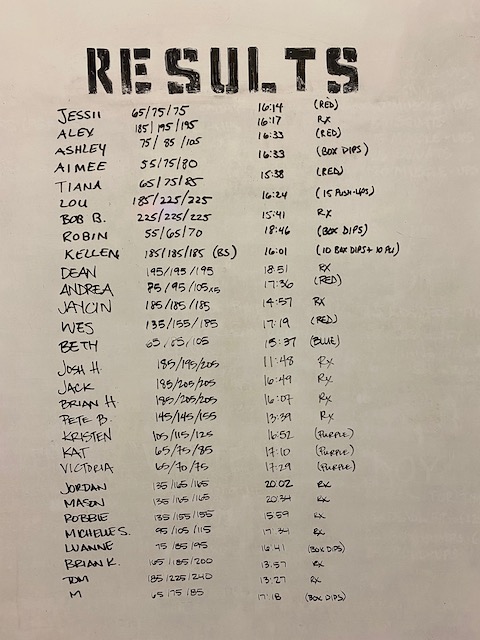 RESULTS
JESSII 65/75/75 16:14 (RED)
ALEX 185/195/195 16:17 RX
ASHLEY 75/85/105 16:33 (RED)
AIMEE 55/75/80 16:33 (BOX DIPS)
TIANA 65/75/85 15:38 (RED)
LOU 185/225/225 16:24 (15 PUSH-UPS)
BOB B. 225/225/225 15:41 RX
ROBIN 55/65/70 18:46 (BOX DIPS)
KELLEN 185/185/185 (BS) 16:01 (10 BOX DIPS + 10 PU)
DEAN 195/195/195 18:51 RX
ANDREA 75/95/105x5 17:36 (RED)
JAYCIN 185/185/185 14:57 RX
WES 135/155/185 17:19 (RED)
BETH 65/85/105 15:37 (BLUE)
JOSH H. 185/195/205 11:48 RX
JACK 185/205/205 16:49 RX
BRIAN H. 185/205/205 16:07 RX
PETE B. 145/145/155 13:39 RX
KRISTEN 105/115/125 16:52 (PURPLE)
KAT 65/75/85 17:10 (PURPLE)
VICTORIA 65/70/75 17:29 (PURPLE)
JORDAN 135/165/165 20:02 RX
MASON 135/165/165 20:34 RX
ROBBIE 135/155/155 15:59 RX
MICHELLE S. 95/105/115 17:34 RX
LUANNE 75/85/95 16:41 (BOX DIPS)
BRIAN K. 165/185/200 13:57 RX
TOM 185/225/240 13:27 RX
M 65/75/85 17:18 (BOX DIPS)